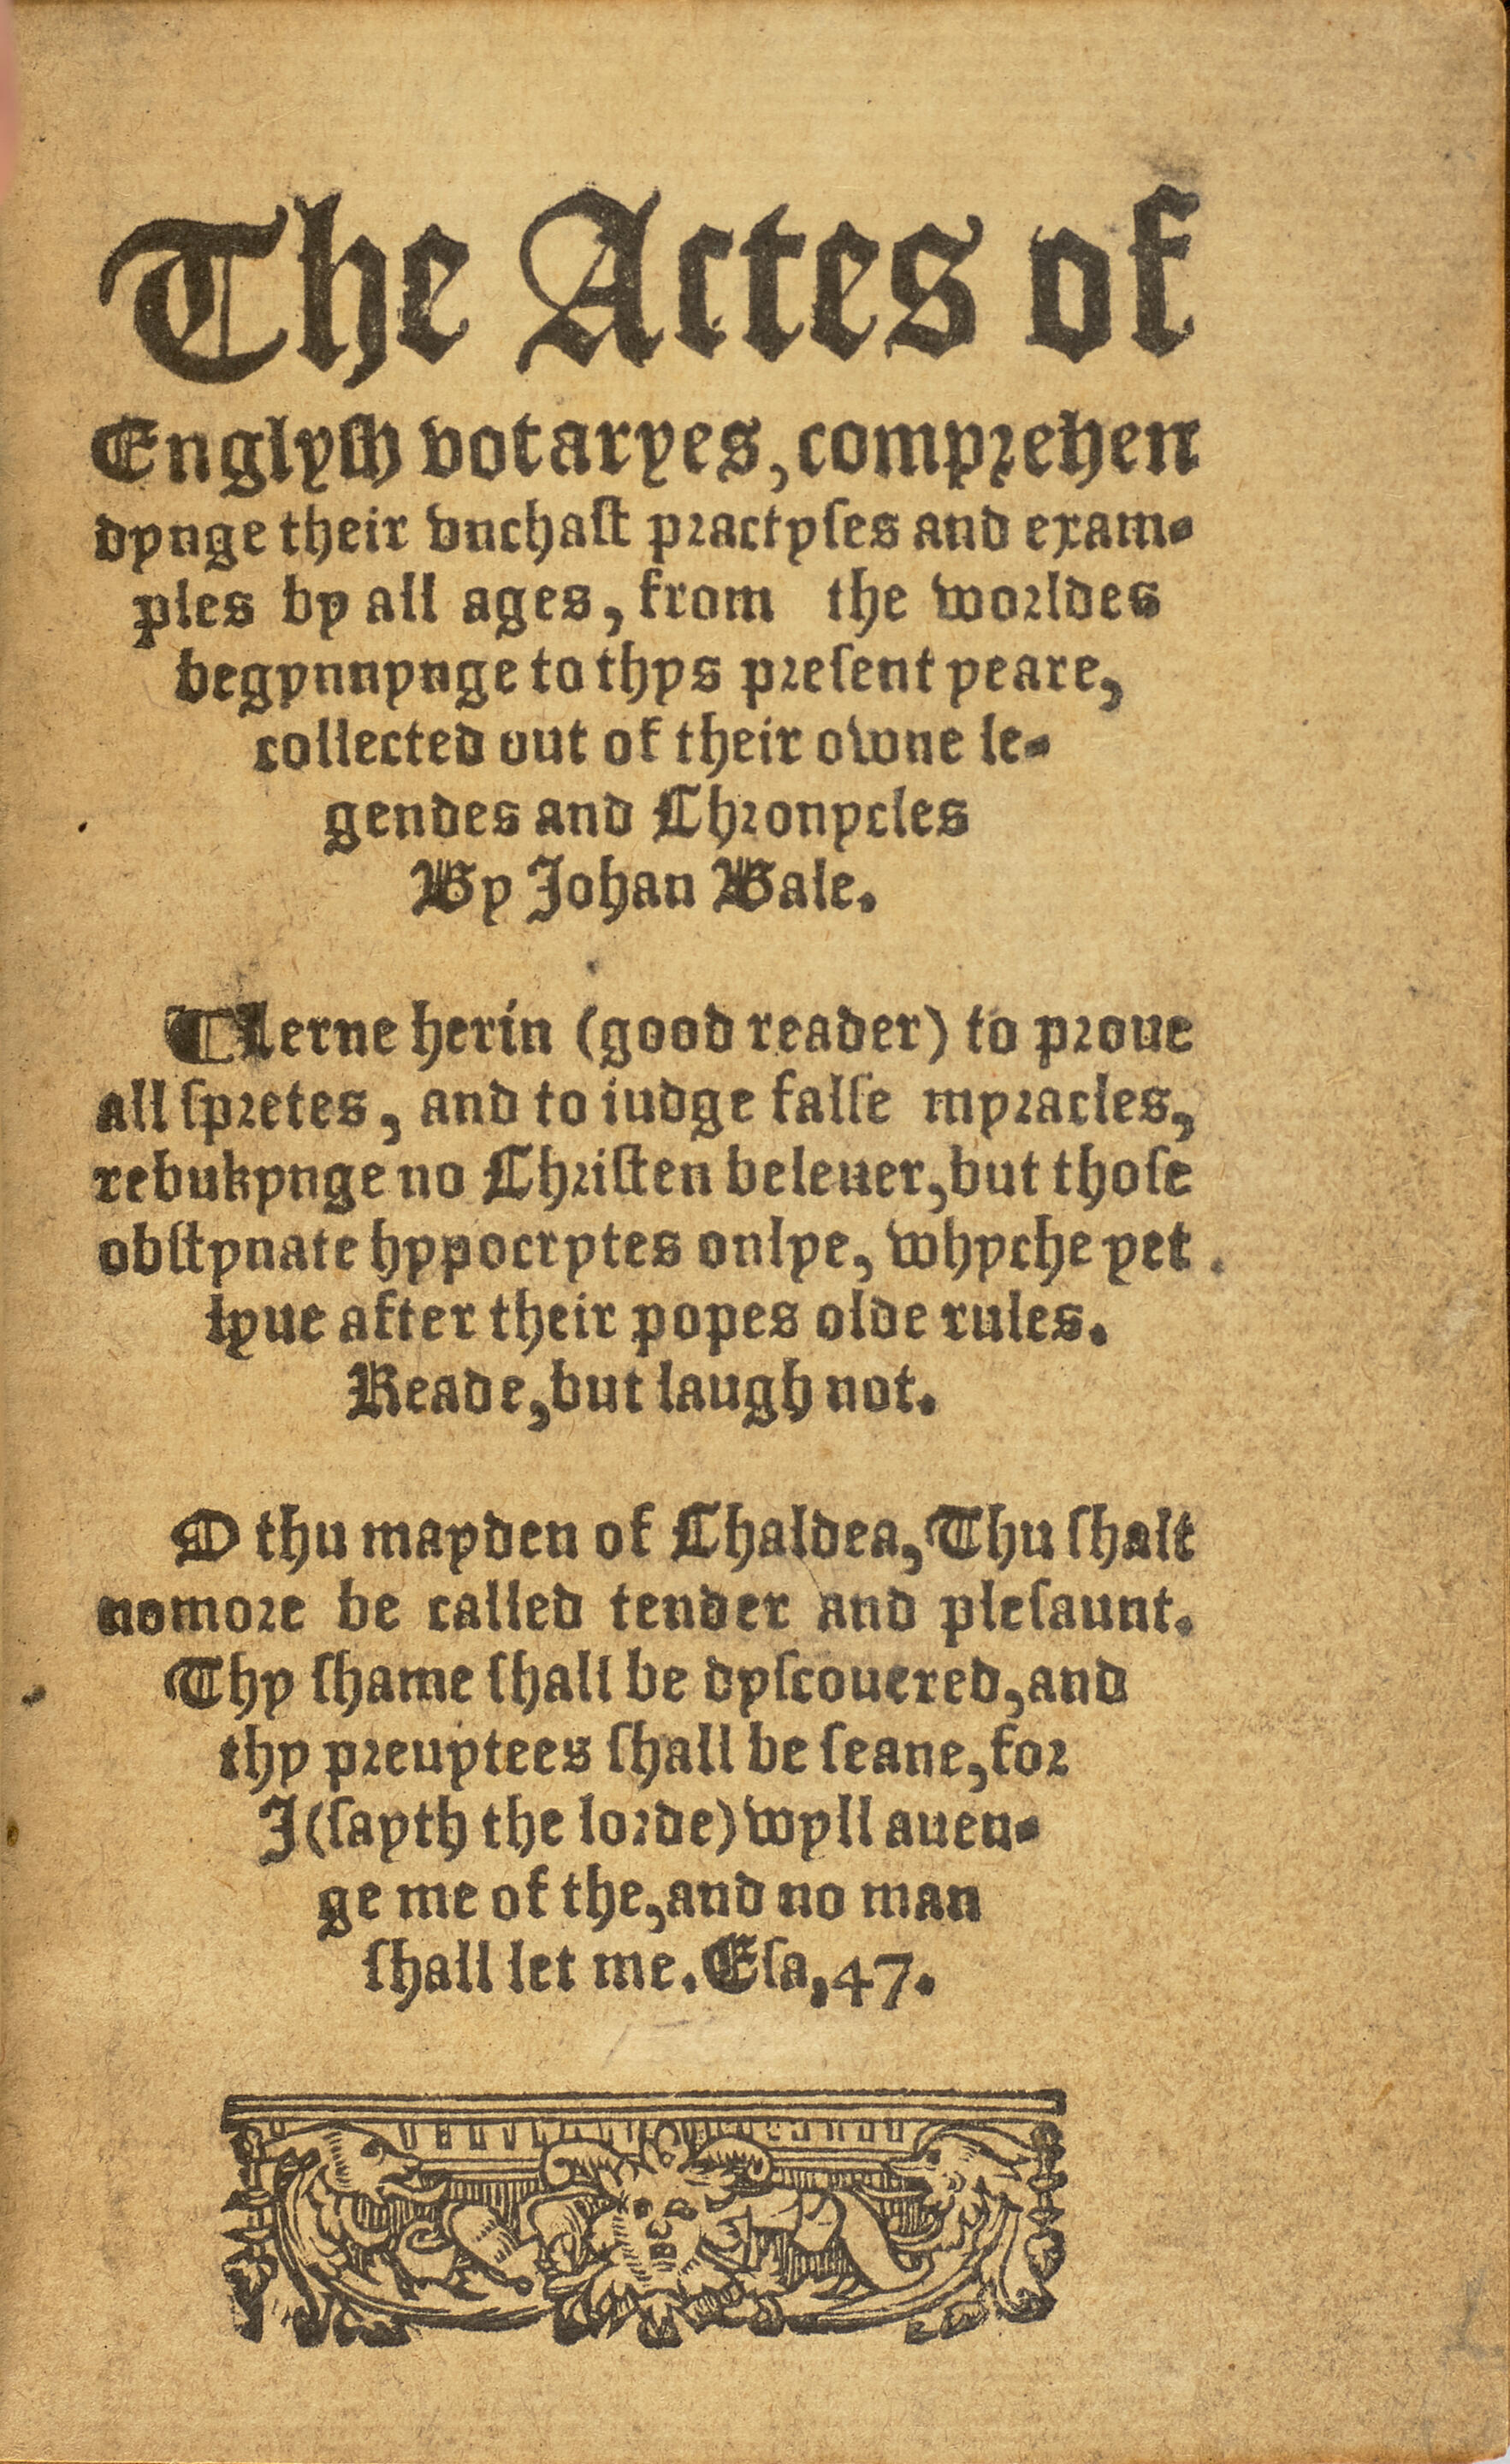 The Actes of
Englyſh votaryes, comprehen
dynge their vnchaſt practyſes and exam-
ples by all ages, from the worldes
begynnynge to thys preſent yeare,
collected out of their owne le-
gendes and Chronycles
By Johan Bale.
¶ Lerne herin (good reader) to proue
all ſpretes, and to iudge falſe myracles,
rebukynge no Chriſten beleuer, but thoſe
obſtynate hypocrytes onlye, whyche yet
lyue after their popes olde rules.
Reade, but laugh not.
O thu mayden of Chaldea, Thu ſhalt
nomore be called tender and pleſaunt.
Thy ſhame ſhall be dyſcouered, and
thy preuytees ſhall be ſeane, for
J (ſayth the lorde) wyll auen-
ge me of the, and no man
ſhall let me. Eſa, 47.